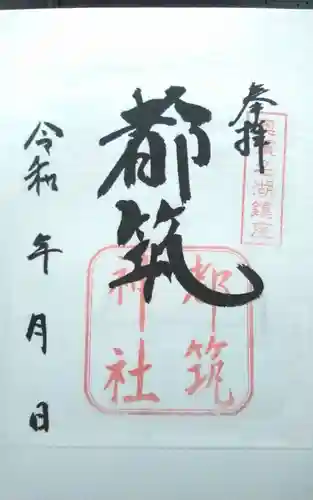 奉拝
奥浜名湖鎮座
都筑
都筑
神社
令和 年 月 日